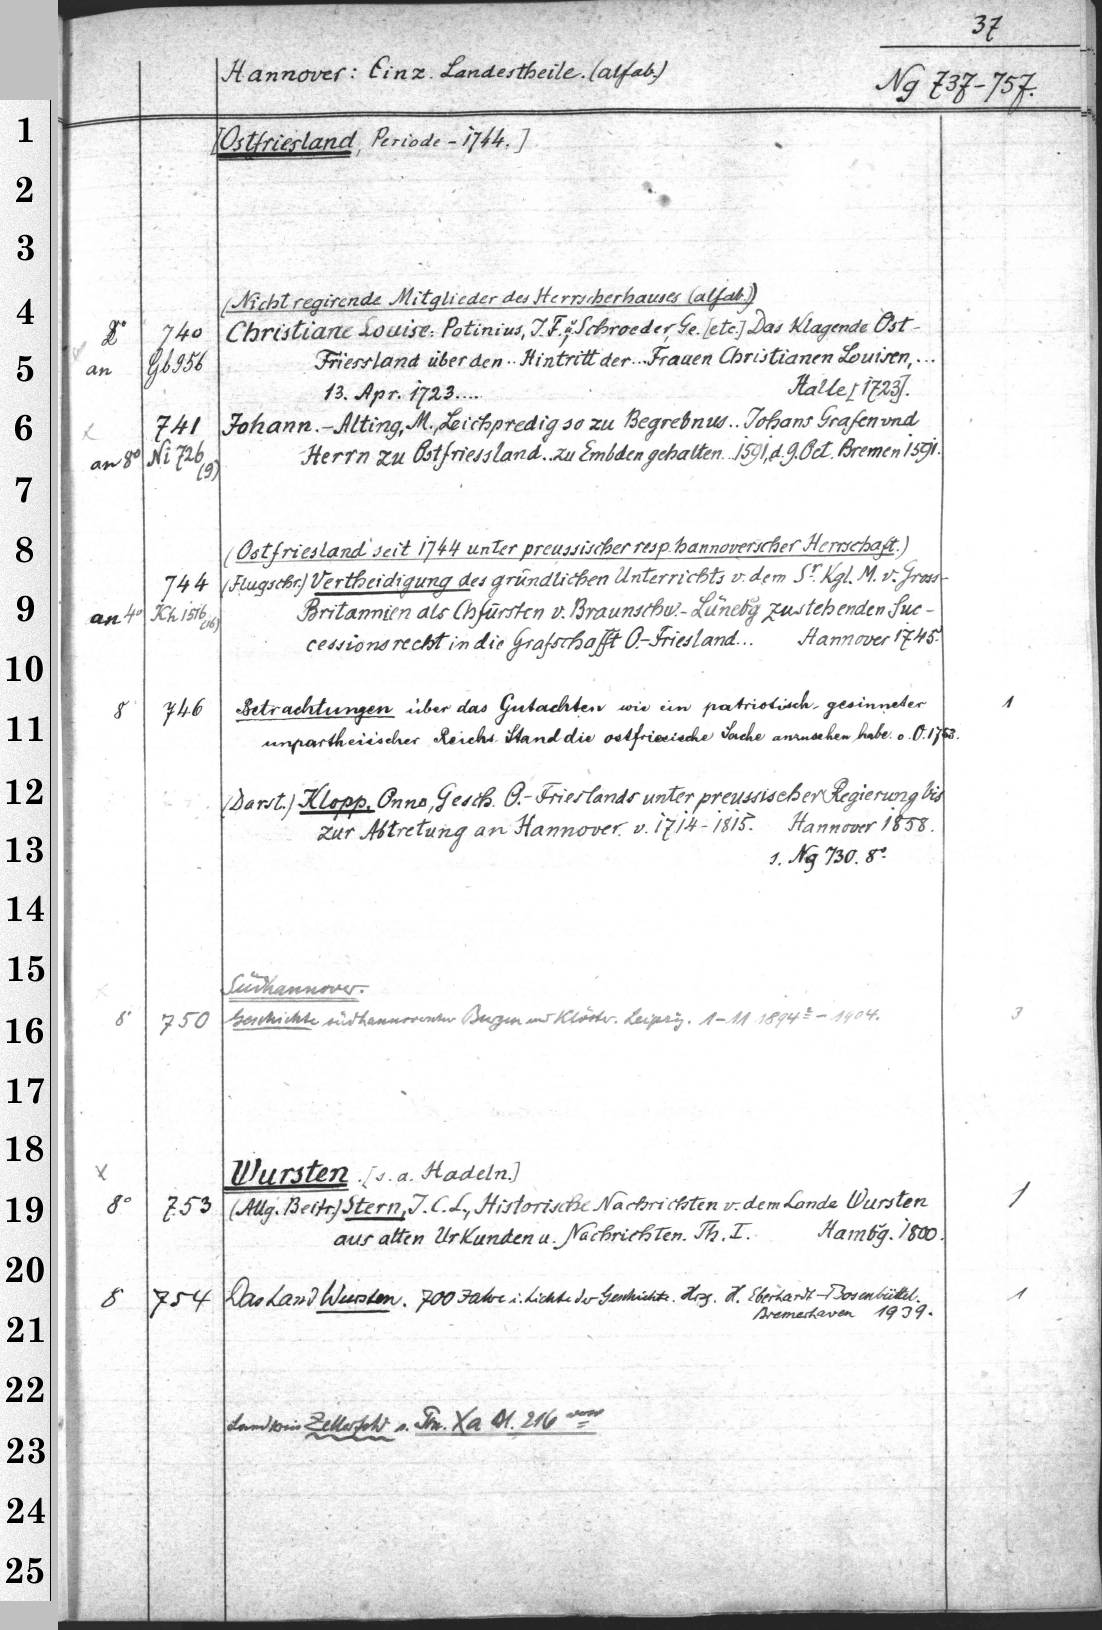 37
Hannover: Einz. Landestheile. (alfab.)
Ng 737-757.
1
[Ostfriesland, Periode - 1744.]
2
3
(Nicht regirende Mitglieder des Herrscherhauses (alfab.))
4
2° 740 Christiane Louise: Potinius, J. F. u. Schroeder, Ge. [etc.] Das Klagende Ost-
an Gb 956 Friessland über den .. Hintritt der ... Frauen Christianen Louisen, ...
5
13. Apr. 1723.... Halle [1723].
6
741 Johann. - Alting, M., Leichpredig so zu Begrebnus .. Johans Grafen vnd
an 8° Ni 726 (9) Herrn zu Ostfriessland .. zu Embden gehalten .. 1591, d. 9. Oct. Bremen 1591.
7
8
(Ostfriesland seit 1744 unter preussischer resp. hannoverscher Herrschaft.)
744 (Flugschr.) Vertheidigung des gründlichen Unterrichts v. dem Sr. Kgl. M. v. Gross-
9
an 4° Kh 1516 (16) Britannien als Chfürsten v. Braunschw.-Lünebg zustehenden Suc-
cessionsrecht in die Grafschafft O.-Friesland... Hannover 1745.
10
8 746 Betrachtungen über das Gutachten wie ein patriotisch-gesinneter 1
11
unpartheiischer Reichs-Stand die ostfriesische Sache anzusehen habe. o. O. 1753.
12
(Darst.) Klopp, Onno, Gesch. O.-Frieslands unter preussischer Regierung bis
zur Abtretung an Hannover. v. 1714-1815. Hannover 1858.
13
s. Ng 730. 8°.
14
15
Südhannover.
16
8° 750 Geschichte südhannoverscher Burgen und Klöster. Leipzig. 1-11 1894 - 1904. 3
17
18
Wursten. [s. a. Hadeln.]
19
8° 753 (Allg. Beitr.) Stern, J. C. L., Historische Nachrichten v. dem Lande Wursten 1
aus alten Urkunden u. Nachrichten. Th. I. Hambg. 1800.
20
8 754 Das Land Wursten. 700 Jahre i. Lichte der Geschichte. Hrg. H. Eberhardt-Bosenbüttel. 1
Bremerhaven 1939.
21
22
Landkreis Zellerfeld s. Xa Bl. 216
23
24
25